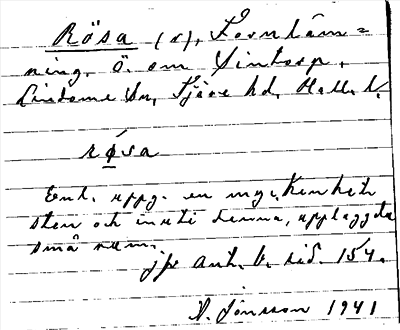 Rösa (r), Fornläm=
ning, ö. om Sintorp,
Lindome sn, Fjäre hd, Hall. l.
rø´sa
Enl. uppg. en myckenhet
sten och inuti denna, upplaggda
små rum.
jfr ant. b. sid. 154.
N. Jönsson 1941